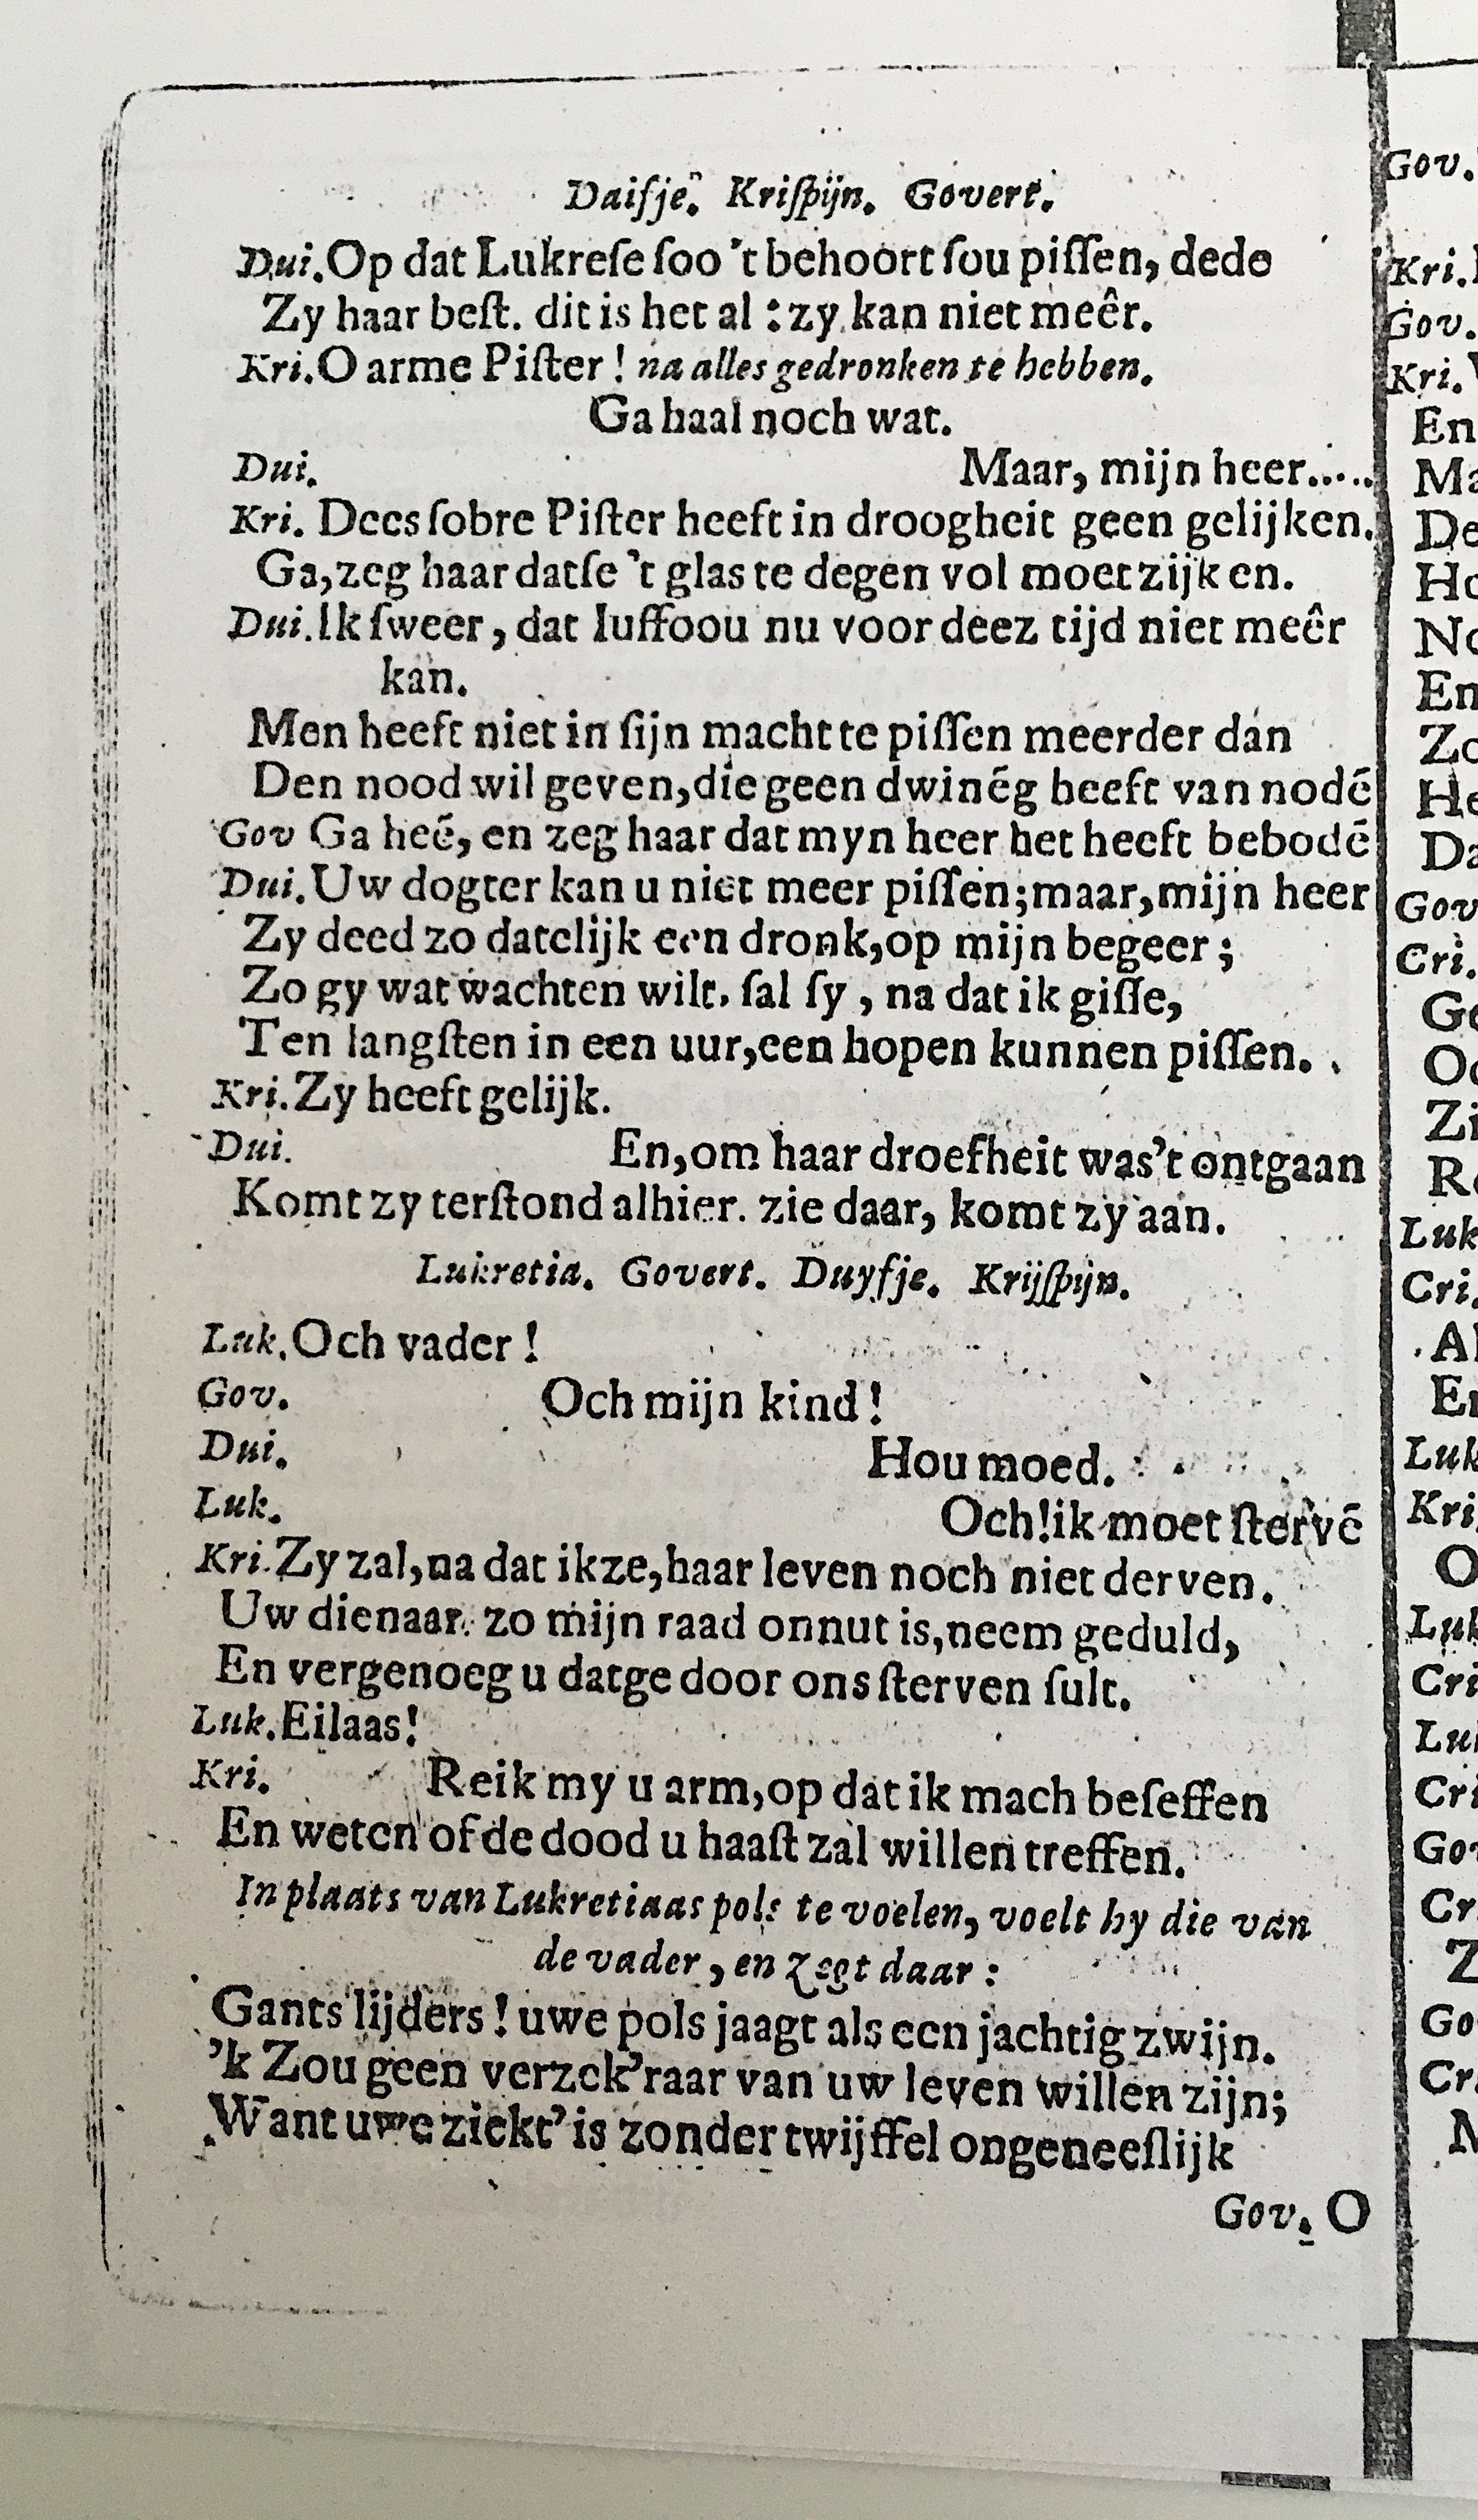 Daiſje. Kriſpijn. Govert.
Dui. Op dat Lukreſe ſoo 't behoort ſou piſſen, dede
Zy haar beſt. dit is het al : zy kan niet meêr.
Kri. O arme Piſter ! na alles gedronken te hebben.
Ga haal noch wat.
Dui. Maar, mijn heer.....
Kri. Dees ſobre Piſter heeft in droogheit geen gelijken.
Ga, zeg haar datſe 't glas te degen vol moet zijken.
Dui. Ik ſweer, dat Iuffoou nu voor deez tijd niet meêr
kan.
Men heeft niet in ſijn macht te piſſen meerder dan
Den nood wil geven, die geen dwinēg heeft van nodē
Gov Ga heē, en zeg haar dat myn heer het heeft bebodē
Dui. Uw dogter kan u niet meer piſſen; maar, mijn heer
Zy deed zo datelijk een dronk, op mijn begeer ;
Zo gy wat wachten wilt. ſal ſy , na dat ik giſſe,
Ten langſten in een uur, een hopen kunnen piſſen.
Kri. Zy heeft gelijk.
Dui. En, om haar droefheit was't ontgaan
Komt zy terſtond alhier. zie daar, komt zy aan.
Lukretia. Govert. Duyfje. Krijſpijn.
Luk. Och vader !
Gov. Och mijn kind !
Dui. Hou moed.
Luk. Och! ik moet ſtervē
Kri. Zy zal, na dat ik ze, haar leven noch niet derven.
Uw dienaar. zo mijn raad onnut is, neem geduld,
En vergenoeg u datge door ons ſterven ſult.
Luk. Eilaas!
Kri. Reik my u arm, op dat ik mach beſeffen
En weten of de dood u haaſt zal willen treffen.
In plaats van Lukretiaas pols te voelen, voelt hy die van
de vader , en zegt daar :
Gants lijders ! uwe pols jaagt als een jachtig zwijn.
'k Zou geen verzek'raar van uw leven willen zijn;
Want uwe ziekt' is zonder twijffel ongeneeſlijk
Gov. O
Gov.
Kri.
Gov.
Kri.
En
Gov
Cri.
Luk
Cri.
Luk
Kri.
O
Luk
Cri
Luk
Cri
Gov
Cr.
Z
Go
Cr.